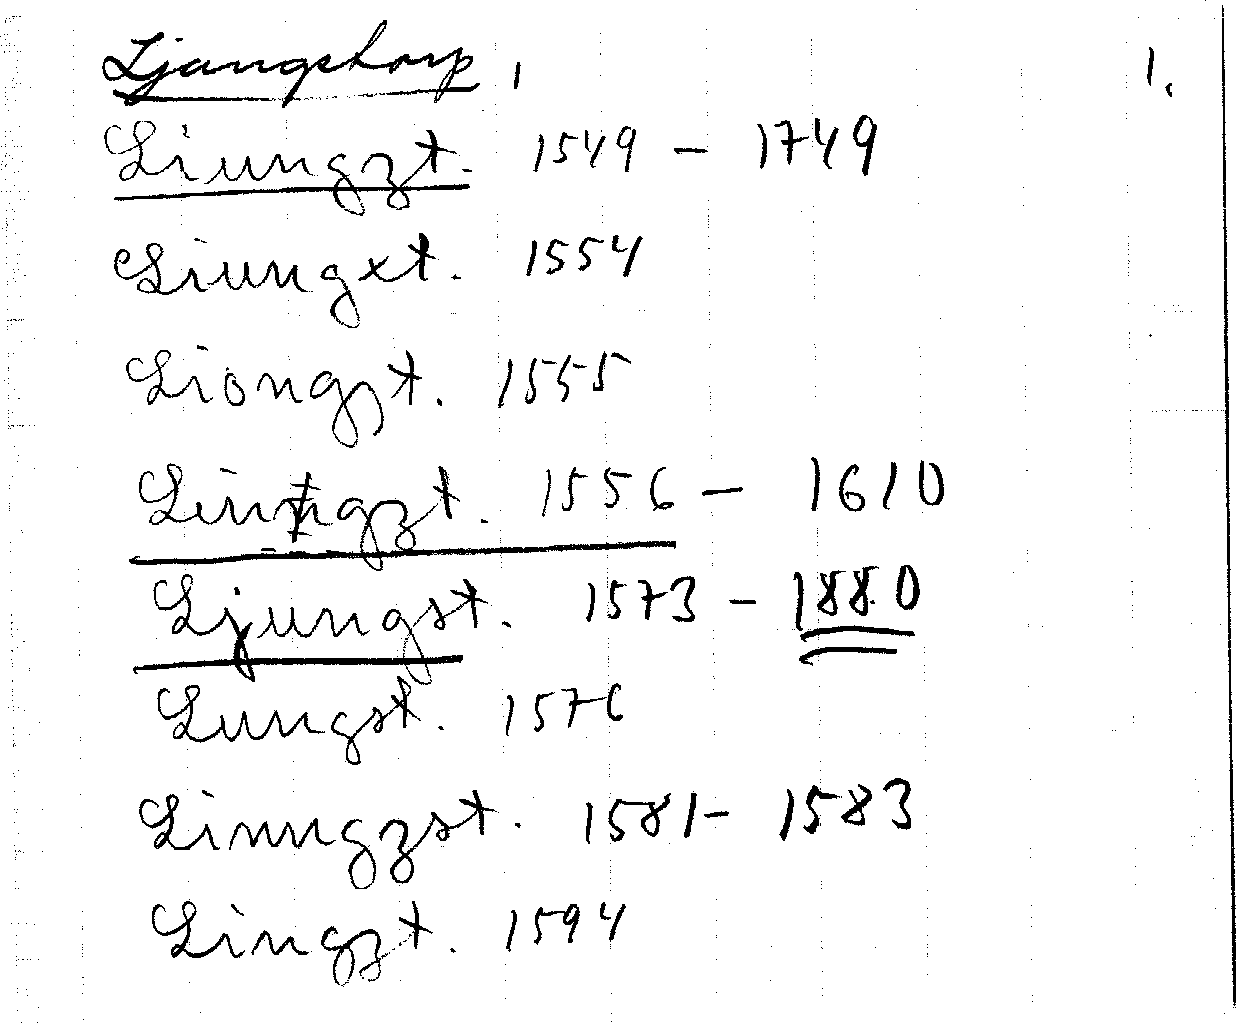 Ljungstorp, 1.
Liungzt. 1549 - 1749
Liungxt. 1554
Liongzt. 1555
Linngzt. 1556 - 1610
Ljungst. 1573 - 1880
Lungst. 1576
Linngzst. 1581 - 1583
Lingzt. 1594